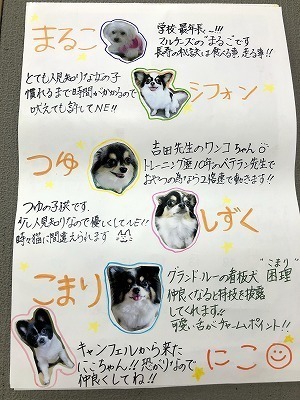 まるこ
学校最年長ー!!!
マルチーズの"まるこ"です
長寿の秘訣は食べる事 走る事!!
とても人見知りな女の子
慣れるまで時間がかかるので
吠えても許してNE!!
シフォン
つゆ
吉田先生のワンコちゃん
トレーニング歴10年のベテラン先生で
おやつの為なら2倍速で動きます!!
つゆの子供です。
少し人見知りなので優しくしてNE!!
時々猫に間違えられます
しずく
こまり
グランドルーの看板犬
"こまり"
困理
仲良くなると特技を披露
してくれます!!
可愛い舌がチャームポイント!!
キャンフェルから来た
にこちゃん!!恐がりなので
仲良くしてね!!
にこ